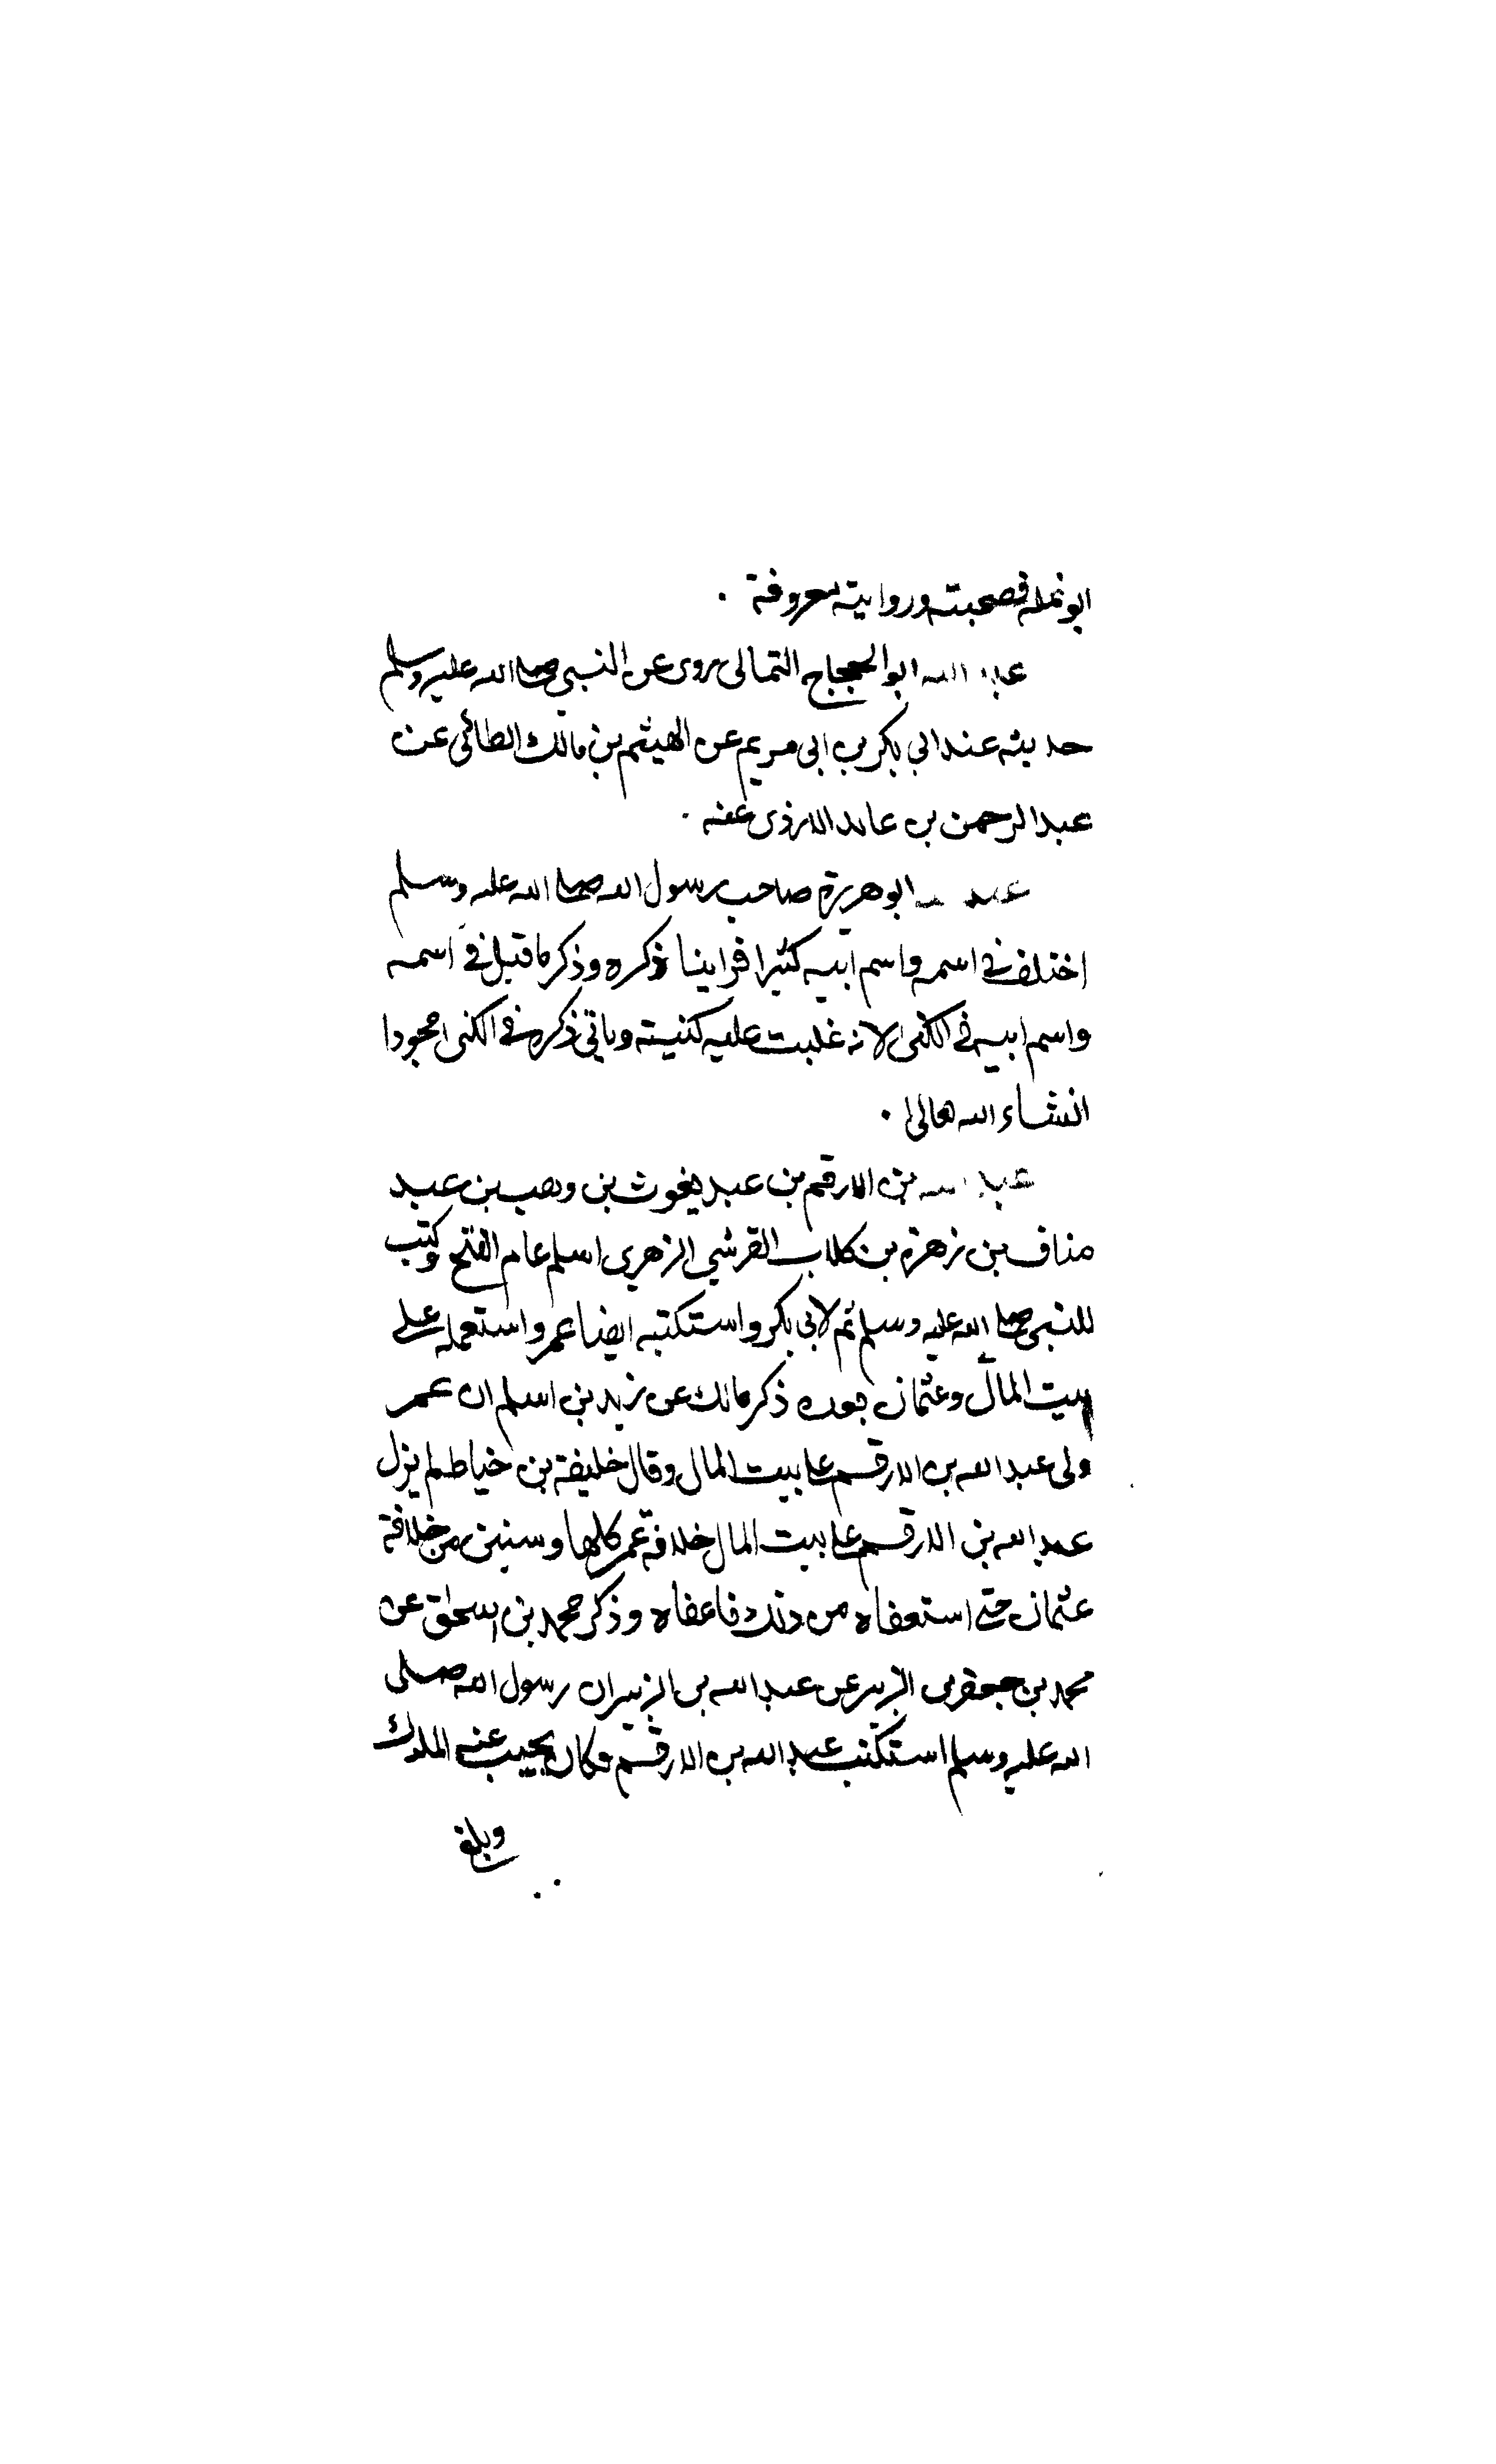 ابو نملة فصحبته وروايته معروفة .
عبد الله ابو الحجاج الثمالى روى عن النبي صلى الله عليه وسلم
حديثه عند ابي بكر بن ابى مريم عن الهيثم بن مالك الطائى عن
عبد الرحمن بن عايد الازدى عنه .
عبد الله ابو هريرة صاحب رسول الله صلى الله عليه وسلم
اختلف فى اسمه واسم ابيه كثيرا فراينا ذكره وذكر ما قيل فى اسمه
واسم ابيه فى الكنى لانه غلبت عليه كنيته وياتى ذكره فى الكنى مجودا
انشاء الله تعالى .
عبد الله بن الارقم بن عبد يغوث بن وهب بن عبد
مناف بن زهرة بن كلاب القرشي الزهري اسلم عام الفتح وكتب
للنبى صلى الله عليه وسلم ثم لابى بكر واستكتبه ايضا عمر واستعمله على
بيت المال وعثمان بعده ذكر مالك عن زيد بن اسلم ان عمر
ولى عبد الله بن الارقم على بيت المال وقال خليفة بن خياط لم يزل
عبد الله بن الارقم على بيت المال خلافة عمر كلها وسنين من خلافة
عثمان حتى استعفاه من ذلك فاعفاه وذكر محمد بن اسحاق عن
محمد بن جعفر بن الزبير عن عبد الله بن الزبير ان رسول الله صلى
الله عليه وسلم استكتب عبد الله بن الارقم فكان يجيب عنه الملوك
وبلغ